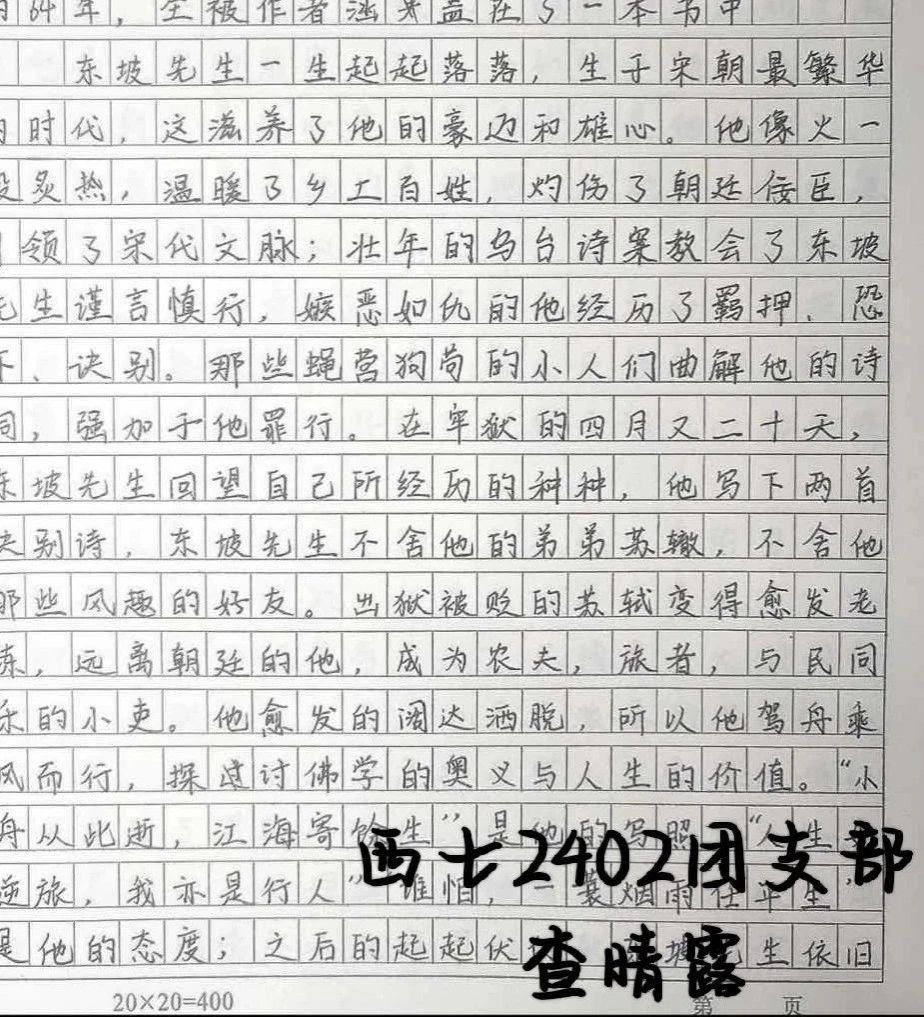 64年，全被作者涵盖在了一本书中
东坡先生一生起起落落，生于宋朝最繁华
的时代，这滋养了他的豪迈和雄心。他像火一
般炙热，温暖了乡土百姓，灼伤了朝廷佞臣，
领了宋代文脉；壮年的乌台诗案教会了东坡
先生谨言慎行，嫉恶如仇的他经历了羁押、恐
吓、诀别。那些蝇营狗苟的小人们曲解他的诗
词，强加于他罪行。在牢狱的四月又二十天，
东坡先生回望自己所经历的种种，他写下两首
诀别诗，东坡先生不舍他的弟弟苏辙，不舍他
那些风趣的好友。出狱被贬的苏轼变得愈发老
练，远离朝廷的他，成为农夫，旅者，与民同
乐的小吏。他愈发的阔达洒脱，所以他驾舟乘
风而行，探讨佛学的奥义与人生的价值。“小
舟从此逝，江海寄馀生”是他的写照“人生
逆旅，我亦是行人”谁怕，一蓑烟雨任平生”
是他的态度；之后的起起伏 坡先生依旧
西七2402团支部
查晴露
20×20=400
第 页